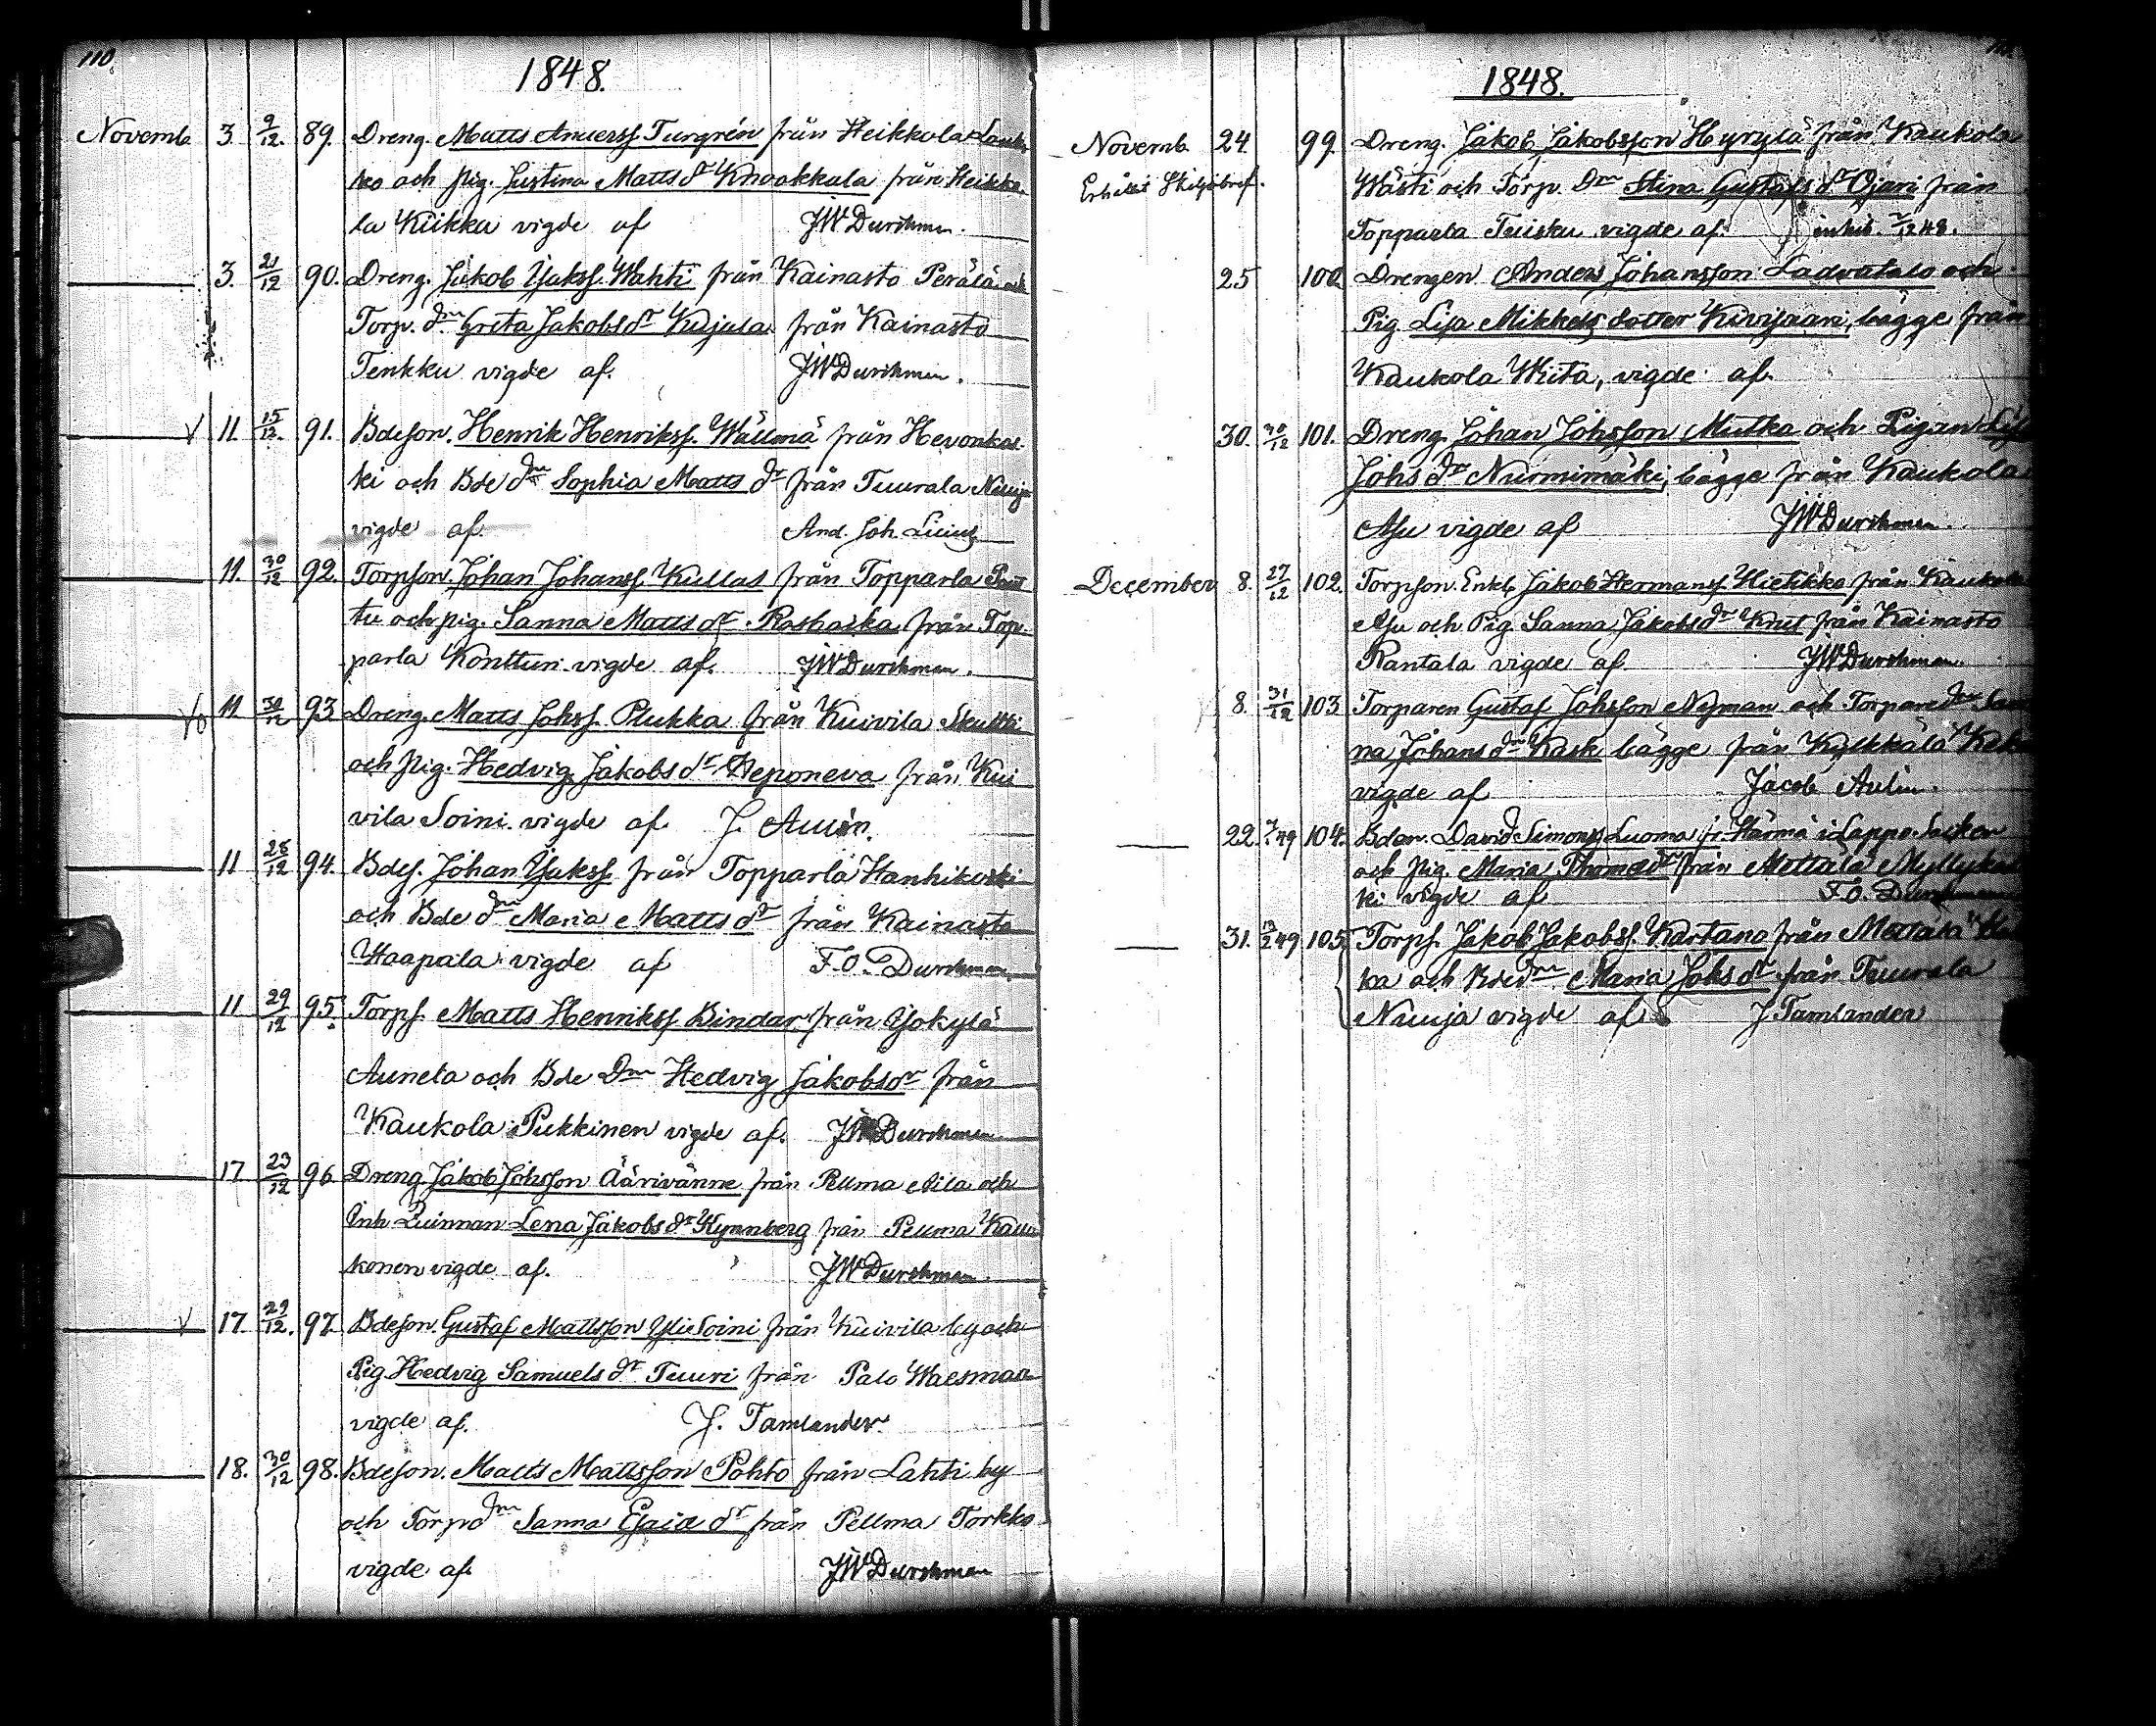 110
1848.
Novemb. 3 9/12. 89. Dreng. Matts Anderss. Turgrén från Heikkola Lauk
ko och pig. Justina Matts dr Knookkala från Heikko
la Kiikku vigde af JWDurchman.
3. 21/12 90. Dreng. Jakob Isakss. Wahti från Kainasto Perälä och
Torp. dm Greta Jakobs dr Kujala från Kainasto
Tenkku vigde af. JWDurchman.
11. 15/12. 91. Bdeson. Henrik Henrikss. Wällmä från Hevonkos
ki och Bde dm Sophia Matts dr från Tuurala Niuja
vigde af. And. Joh. Lilius
11. 30/12 92. Torpson. Johan Johanss. Kullas från Topparla Pant
tu och pig. Sanna Matts dr Raskaska från Top
parla Kontturi vigde af. JWDurchman.
11 30/12 93 Dreng. Matts Johss. Plukka från Kuivila Skultti
och pig. Hedvig Jakobs dr Deponeva från Kui
vila Soini vigde af J. Aulin.
11 28/12 94. Bdes. Johan Isakss. från Topparla Hanhikoski
och Bde dm Maria Matts dr från Kainasto
Haapala vigde af F.O. Durchman
11 29/12 95. Torps. Matts Henrikss. Bindar från Jokylä
Auneta och Bde Dm Hedvig Jakobsdr från
Kaukola Pukkinen vigde af. JWDurchman
17 23/12 96 Dreng. Jakob Johsson Äärivänne från Pelma Aila och
Inh Quinnan Lena Jakobs dr Kynnberg från Pelma Kau
konen vigde af. JWDurchman.
17 29/12. 97. Bdeson. Gustaf Mattsson Yli Soini från Kuivila by och
Pig. Hedvig Samuels dr Tuuri från Palo Waismaa
vigde af. J. Tamlander.
18. 30/12 98. Bdeson. Matts Mattsson Pohto från Lahti by
och Torpo dm Sanna Esaia dr från Pellma Torkko
vigde af. JWDurchman
1848.
Novemb. 24 99. Dreng. Jakob Jakobsson Hyrylä från Kaukola
Erhållit Skiljobref. Wästi och Torp. Dm Stina Gustafs dr Ojari från
Topparla Tuisku vigde af. inhib. 7/12 48.
25 100. Drengen Anders Johansson Ladvatalo och
Pig. Lisa Mikkels dotter Kivisaari, bägge från
Kaukola Wiita, vigde af.
30. 30/12 101. Dreng. Johan Johsson Mutka och Pigan Lisa
Johs dr Nurmimäki, bägge från Kaukola
Asu vigde af JWDurchman.
December 8. 27/12 102. Torpson. Enkl. Jakob Hermanss. Hietikko från Kaukola
Asu och Pig Sanna Jakobs dr Knus från Kainasto
Rantala vigde af. JWDurchman.
8. 31/12 103 Torparen Gustaf Johsson Nyman och Torpare dm San
na Johans dr Kask bägge från Kylkkälä
vigde af Jacob Aulin.
22. 7/1 49 104. Bdan. David Simonss. Luoma fr. Härmä i Lappo Socken
och pig. Maria Thomaedr från Mettälä Myllykos
ki vigde af F.O. Durchman
31. 13/2 49 105. Torps. Jakob Jakobss. Kartano från Mettälä
ka och Bdedm Maria Johs dr från Tuurala
Niuja vigde af J Tamlander